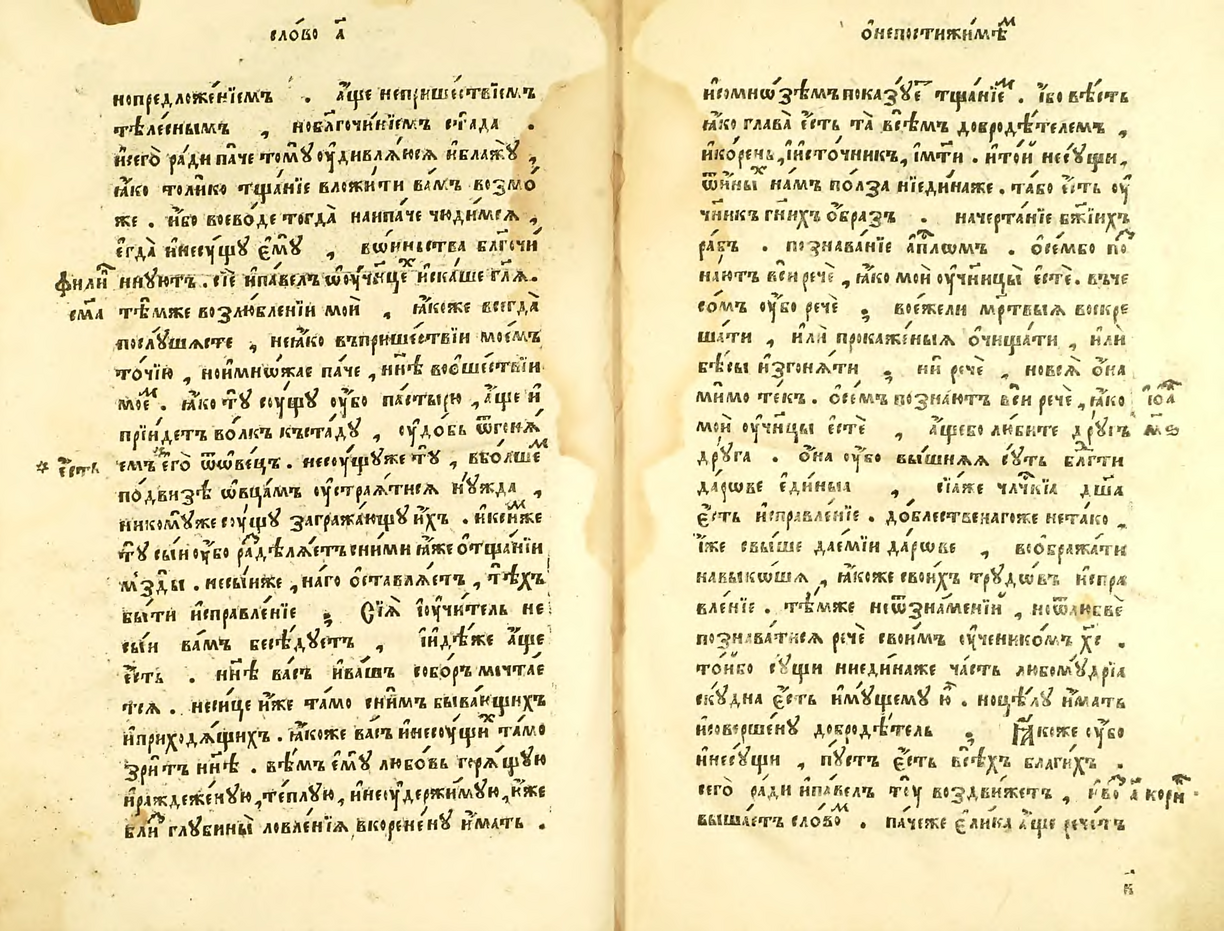 сло́во а҃
нопредложе́нїемъ . А҆́ще непришествїемъ
тѣле́снымъ , нобл҃гочи́нїемъ ста́да .
и҆сего̀ ра́ди па́че томꙋ̀ оу҆дивлѧ́юсѧ и҆блажꙋ̀ ,
ꙗ҆́ко толи́ко тща́нїе вложи́ти ва́мъ возмо́
же . и҆́бо воево́де тогда̀ наипа́че чюди́мсѧ ,
є҆гда̀ и҆несꙋ́щꙋ є҆мꙋ̀ , во́иньства бл҃гочи
ннꙋютъ . сїѐ и҆па́велъ ѡ҆оу҆чн҃цехъ и҆ска́ше гл҃ѧ .
фили҆п
сїа
тѣ́мже возлю́бленїи мои̑ , ꙗ҆́коже всегда̀
послꙋ́шасте , неꙗ҆́ко въприше́ствїи мое́мъ
то́чїю , нои҆мно́жае па́че , нн҃ѣ воѡ҆ше́ствїи
мое́м . ꙗ҆́ко тꙋ̀ сꙋ́щꙋ оу҆́бо па́стырю , а҆́ще и҆
прїи́детъ во́лкъ къста́дꙋ , оу҆до́бь ѿгонѧ́
емъ * є҆го̀ ѿѡ҆ве́цъ . несꙋ́щꙋже тꙋ̀ , вбо́лшем
* є҆́сть
по́двизѣ ѡ҆вца́мъ оу҆страши́тисѧ нꙋ́жда ,
никомꙋ́же сꙋ́щꙋ загражда́ющꙋ и҆́хъ . и҆ксемꙋже
тꙋ̀ сы́и оу҆́бо раздѣлѧ́етъ сни́ми ꙗ҆́же ѡ҆тща́нїи
мзды̀ . несы́иже , на́го ѡ҆ставлѧ́етъ , тѣ́хъ
бы́ти и҆справле́нїе ; Сїѧ̀ і҆оу҆чи́тель не
сы́и ва́мъ бесѣ́дꙋетъ , і҆и҆дѣ́же а҆́ще
є҆́сть . нн҃ѣ ва́съ и҆ва́шъ собо́ръ мечта́е
тсѧ . неси́це и҆́же та́мо сни́мъ быва́ющихъ
и҆приходѧ́щихъ . ꙗ҆́коже ва́съ и҆несꙋ́щихъ та́мо
зри́тъ нн҃ѣ . вѣ́мъ є҆мꙋ̀ любо́вь горѧ́щꙋю
и҆ражде́женꙋю , те́плꙋю , и҆неꙋдержи́мꙋю , и҆́же
глꙋбины̀ ловле́нїѧ , вкорене́нꙋ и҆́мать .
ѡ҆непостижи́мѣм
и҆сомно́зѣмъ показꙋ́е тща́нїем . і҆́бо вѣ́сть
ꙗ҆́ко глава̀ є҆́сть та̀ всѣ́мъ добродѣ́телемъ ,
и҆ко́рень , і҆исто́чникъ , і҆м҃ти . и҆то́й несꙋ́щи ,
ѿи҆ны́хъ на́мъ по́лза ниеди́наже . та́бо є҆́сть оу҆
чн҃къ гн҃ихъ ѻ҆́бразъ . начерта́нїе бж҃їихъ
ра́бъ . познава́нїе а҆пⷭ҇лѡмъ . ѡ҆се́мбо по
зна́ютъ вси̑ речѐ , ꙗ҆́ко мои̑ оу҆чн҃цы̀ є҆стѐ . въче
со́мъ оу҆́бо речѐ ; вое҆же́ли ме́ртвыѧ воскре
ша́ти , и҆лѝ прокаже́ныѧ ѡ҆чища́ти , и҆лѝ
бѣ́сы и҆згонѧ́ти ; нѝ речѐ , новсѧ̀ ѻ҆на̀
ми́мо те́къ . ѡ҆се́мъ позна́ютъ вси̑ речѐ , ꙗ҆́ко
мои̑ оу҆чн҃цы є҆стѐ , а҆́щебо лю́бите дрꙋ́гъ
і҆ѡ҆а
мѕ
дрꙋ́га . ѻ҆на̀ оу҆́бо вы́шнѧѧ сꙋ́ть бл҃гти
да́рове є҆ди́ныа , сїа́же чл҃чкїа дш҃а
є҆́сть и҆справле́нїе . до́блественагоже нета́ко ,
і҆́же свы́ше дае́мїи да́рове , воѡ҆бража́ти
навыко́ша , ꙗ҆́коже свои́хъ трꙋдо́въ и҆спра
вле́нїе . тѣ́мже неѿзна́менїи , ноѿлюбвѐ
познава́тисѧ речѐ свои́мъ оу҆ченико́мъ хс҃ .
то́йбо сꙋ́щи ниеди́наже ча́сть любомꙋ́дрїа
скꙋ́дна є҆́сть и҆мꙋ́щемꙋ ю҆̀ . ноцѣ́лꙋ и҆́мать
и҆соверше́нꙋ добродѣ́тель ; Ꙗ҆́коже оу҆́бо
и҆несꙋ́щи , пꙋ́стъ є҆́сть всѣ́хъ благи́хъ .
сего̀ ра́ди и҆па́велъ тꙋ̀ воздви́жетъ , и҆во
а҃ кори҆н
выша́етъ сло́вом . па́чеже є҆ли́ка а҆́ще рече́тъ
в҃